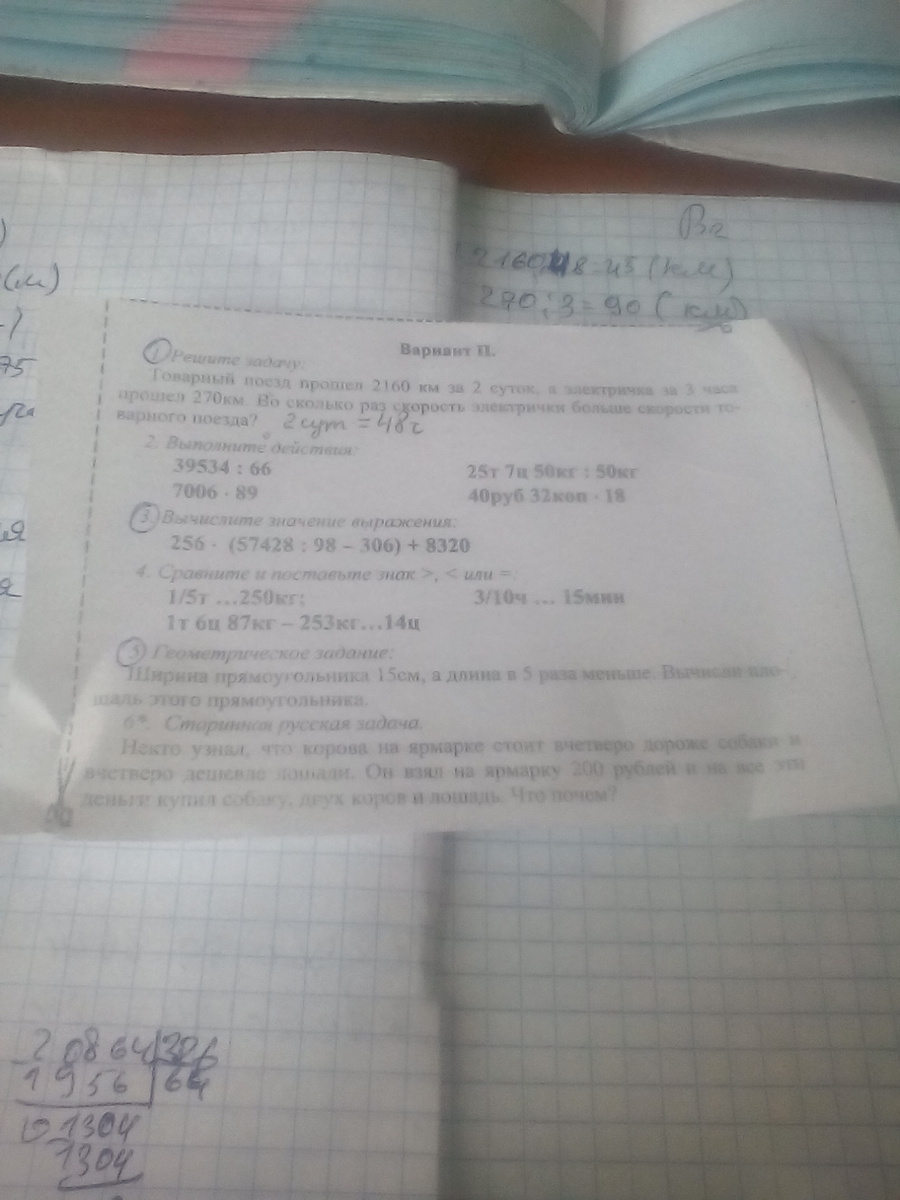 В2
2160:48=45 (км)
270:3=90 (км)
(м)
75
Вариант II.
1 Решите задачу:
Товарный поезд прошел 2160 км за 2 суток, а электричка за 3 часа
прошел 270км. Во сколько раз скорость электрички больше скорости то-
варного поезда? 2 сут = 48 ч
2. Выполните действия:
39534 : 66 25т 7ц 50кг : 50кг
7006 · 89 40руб 32коп · 18
3. Вычислите значение выражения:
256 · (57428 : 98 – 306) + 8320
4. Сравните и поставьте знак >, < или =:
1/5т ...250кг; 3/10ч ... 15мин
1т 6ц 87кг – 253кг...14ц
5 Геометрическое задание:
Ширина прямоугольника 15см, а длина в 5 раза меньше. Вычисли пло-
щадь этого прямоугольника.
6*. Старинная русская задача.
Некто узнал, что корова на ярмарке стоит вчетверо дороже собаки и
вчетверо дешевле лошади. Он взял на ярмарку 200 рублей и на все эти
деньги купил собаку, двух коров и лошадь. Что почем?
20864 326
1956 64
1304
1304